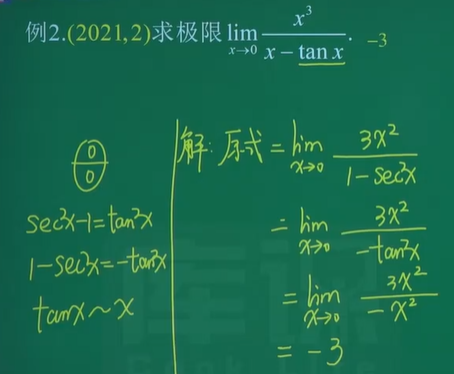 例2.(2021,2)求极限 lim x→0 x³/(x − tan x). −3
0/0
sec²x−1=tan²x
1−sec²x=−tan²x
tanx~x
解: 原式 = lim x→0 3x²/(1−sec²x)
= lim x→0 3x²/(−tan²x)
= lim x→0 3x²/(−x²)
= −3